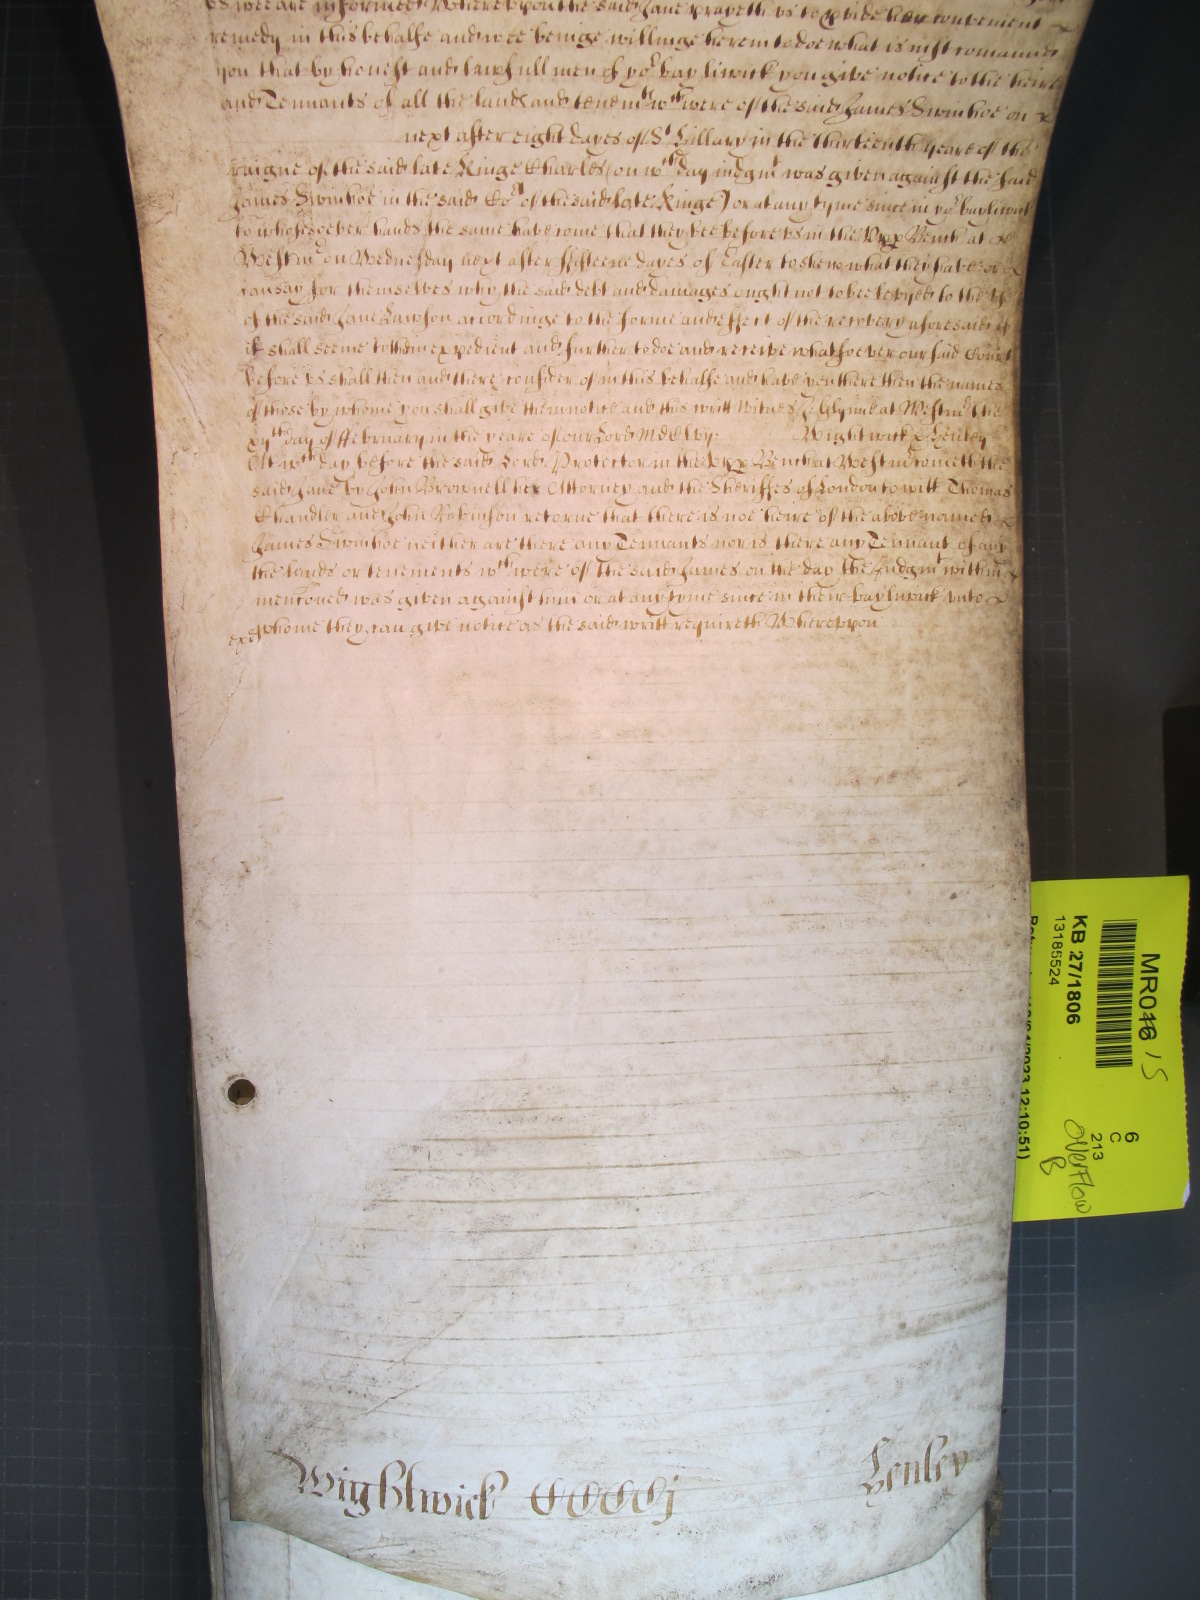 us wee are informed Whereuppon the said Jane prayeth us to pvide her convenient
remedy in this behalfe and wee beinge willinge herein to doe what is iust comaund
you that by honest and lawfull men of yor bayliwick you give notice to the heire
and Tennants of all the lands and tenemts wch were of the said James Swinhoe on
next after eight dayes of St Hillary in the thirteenth yeare of the
raigne of the said late Kinge Charles (on wch day iudgmt was given against the said
James Swinhoe in the said Cot of the said late Kinge) or at any tyme since in yor bayliwick
to whosoever hands the same have come that they bee before us in the Vpp Bench at
Westmr on Wednesday next after fifteene dayes of Easter to shew what they have or
can say for themselves why the said debt and damages ought not to bee levyed to the use
of the said Jane Lawson accordinge to the forme and effect of the recovery aforesaid if
it shall seeme to them expedient and further to doe and receive whatsoever our said Court
before us shall then and there consider of in this behalfe and have you there then the names
of those by whome you shall give them notice and this writt Witnes J Glynne at Westmr the
xijth day of February in the yeare of our Lord MDClvij: Wightwick & Henley
Att wch day before the said Lord Protector in the Vpp Bench at Westmr cometh the
said Jane by John Brownell her Attorney and the Sheriffes of London to witt Thomas
Chandler and John Robinson retorne that there is not heire of the above named
James Swinhoe neither are there any Tennants nor is there any Tennant of any
the lands or tenements wch were of the said James on the day the Judgmt within
mencioned was given against him or at any tyme since in their bayliwick unto
whome they can give notice as the said writt requireth Whereuppon
exd
Wightwick CCCCj Henley
MR046 15
KB 27/1806
13185524
12:10:51)
6
C
213
Overflow
B